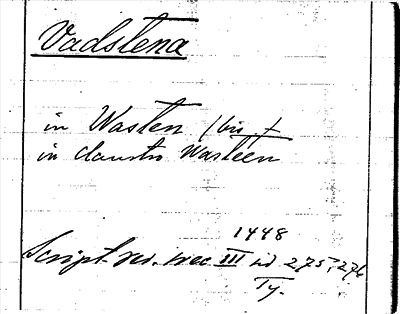 Vadstena
in Wasten (bis)
in claustro Wasteen
1448
Script. rer. svec. III id 275, 276
Ty.